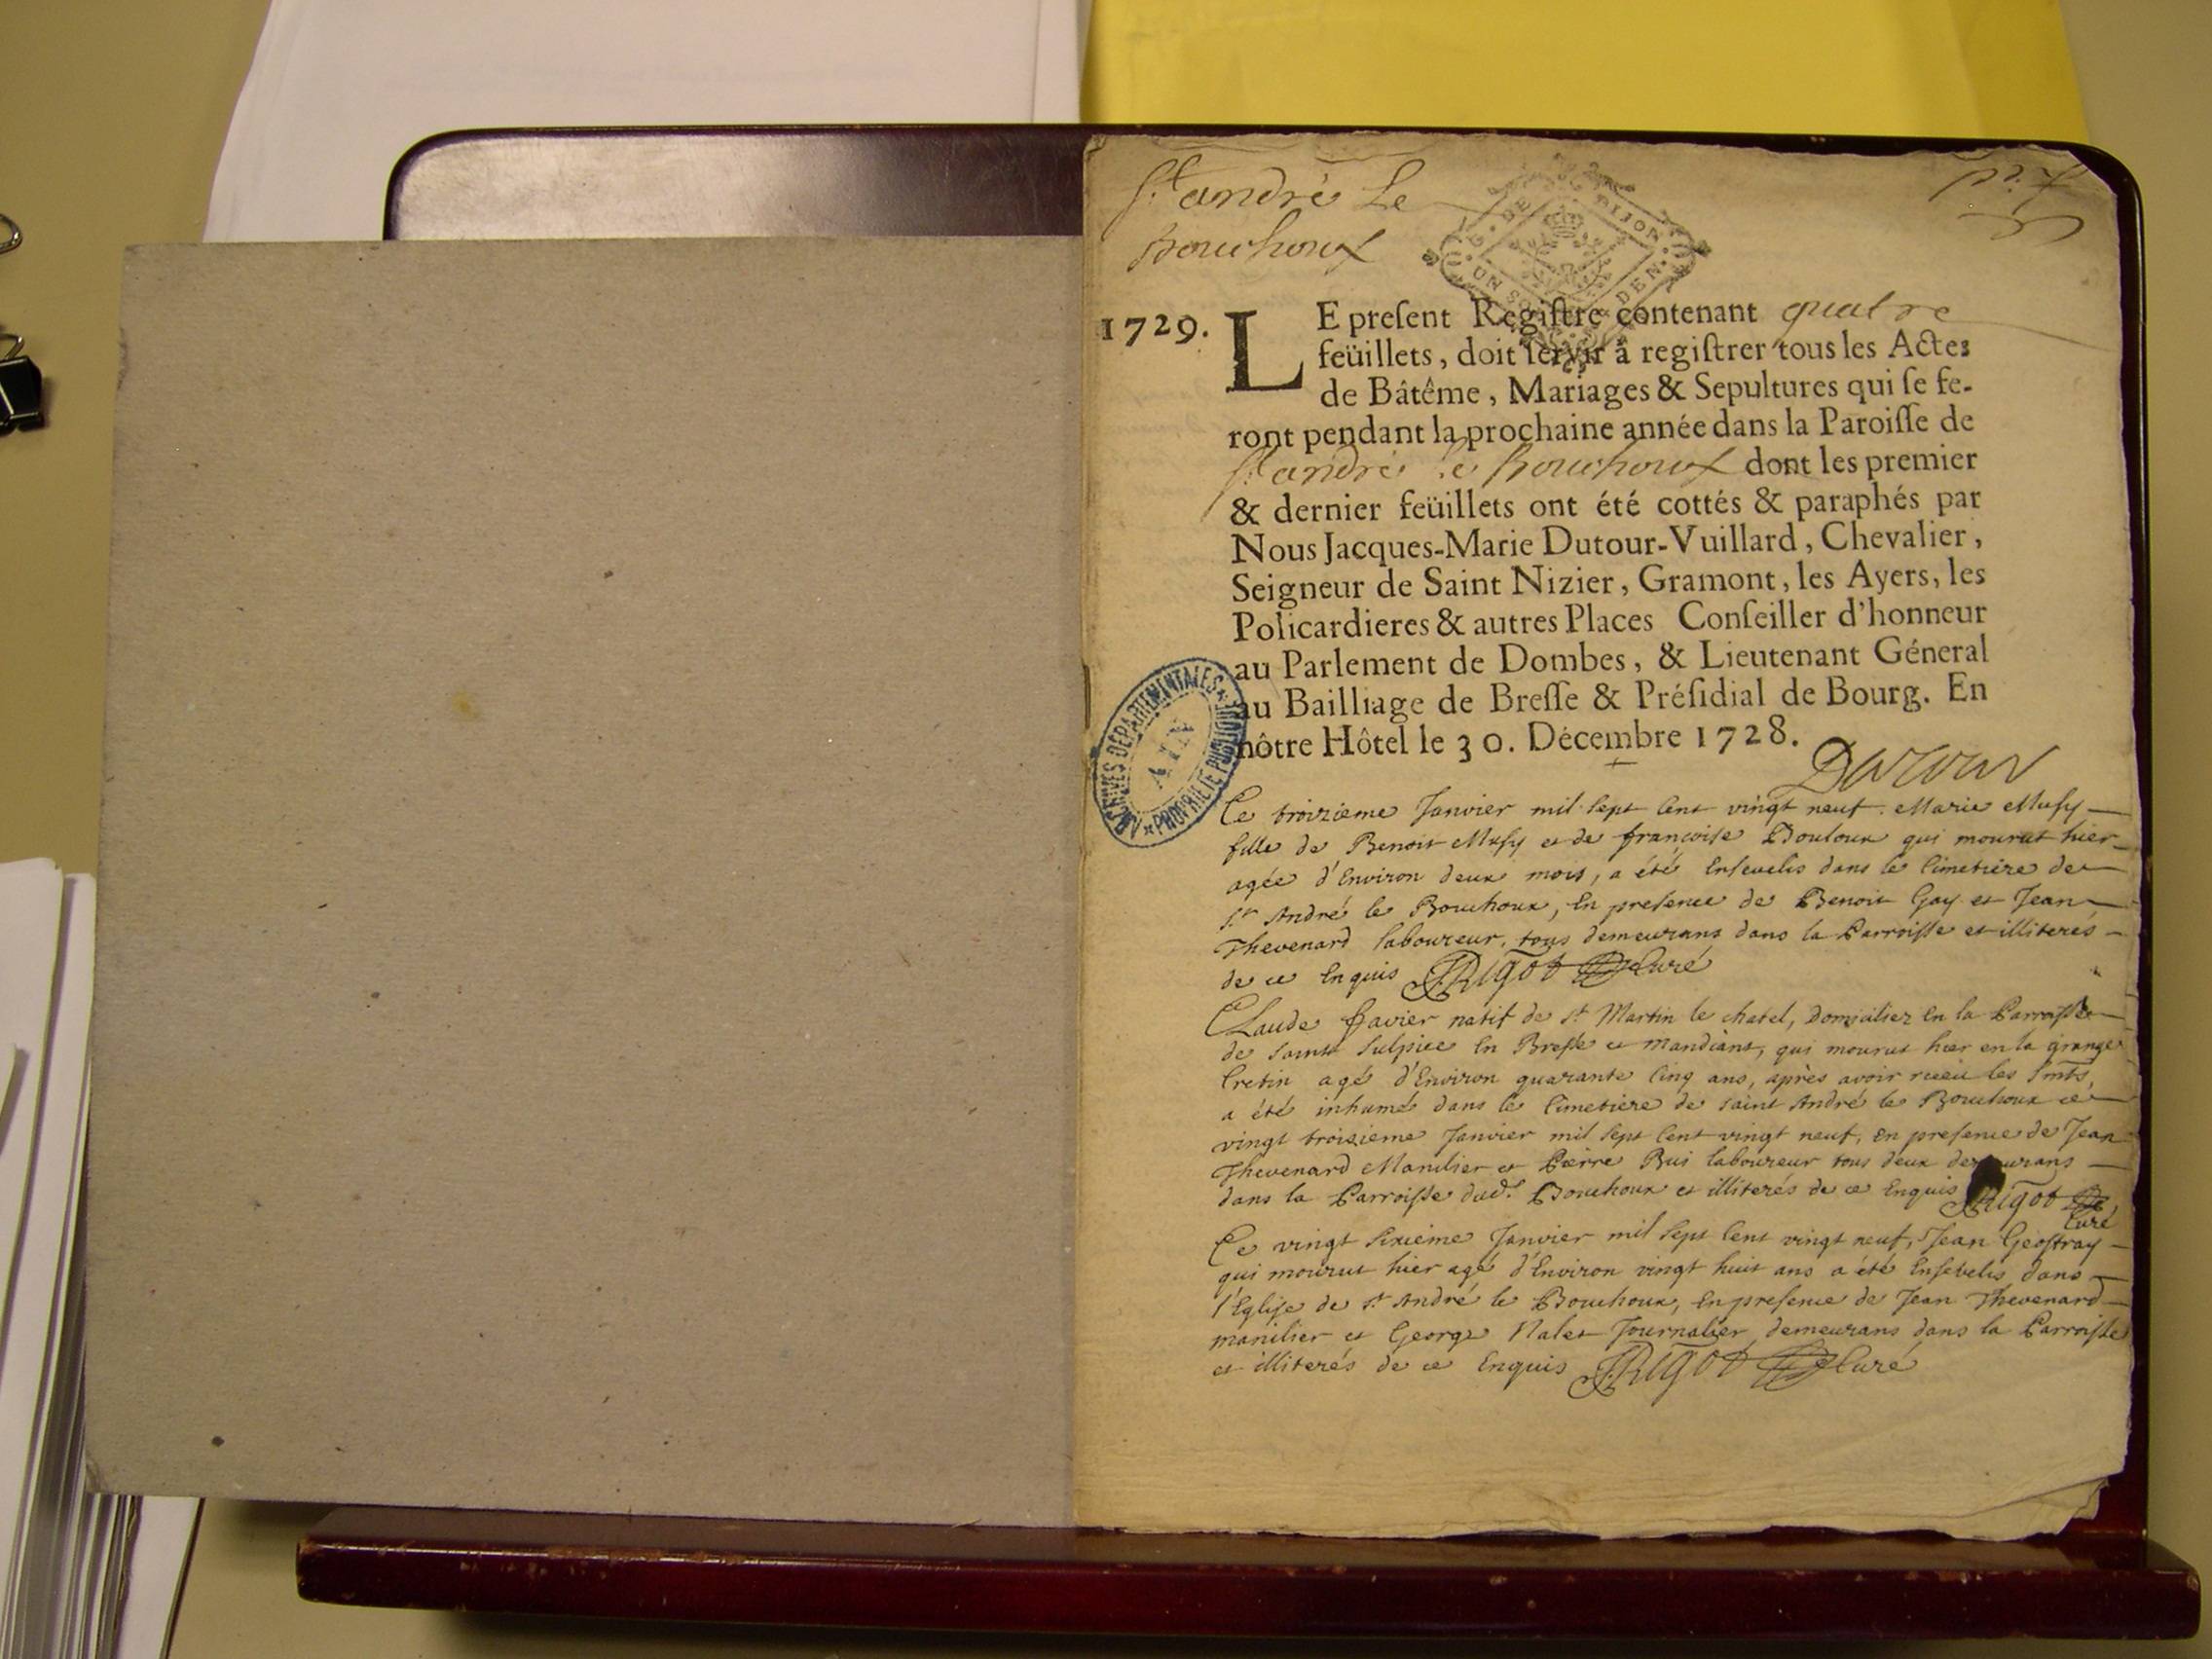 St andré Le
Bouchoux
G. DE DIJON
UN SOL DEN.
1729. LE preſent Regiſtre contenant quatre
feüillets, doit ſervir à regiſtrer tous les Actes
de Bâtême, Mariages & Sepultures qui ſe fe-
ront pendant la prochaine année dans la Paroiſſe de
St andré le Bouchoux dont les premier
& dernier feüillets ont été cottés & paraphés par
Nous Jacques-Marie Dutour-Vuillard, Chevalier,
Seigneur de Saint Nizier, Gramont, les Ayers, les
Policardieres & autres Places Conſeiller d'honneur
au Parlement de Dombes, & Lieutenant Géneral
au Bailliage de Breſſe & Préſidial de Bourg. En
nôtre Hôtel le 30. Décembre 1728.
Dutour
ARCHIVES DÉPARTEMENTALES
AIN
PROPRIÉTÉ PUBLIQUE
Ce troizieme Janvier mil sept cent vingt neuf. Marie
fille de Benoit et de françoise Bouloux qui mourut hier
agée d'Environ deux mois, a été Ensevelis dans le Cimetière de
St André le Bouchoux, En presence de Benoit Gay et Jean
Thevenard laboureur, tous demeurans dans la Parroisse et illiterés
de ce Enquis JRigot Curé
Claude Favier natif de St Martin le chatel, domicilier En la Parroisse
de Saint Sulpice En Bresse et mandiant, qui mourut hier en la grange
Cretin agé d'Environ quarante Cinq ans, après avoir receu les Smts,
a été inhumé dans le Cimetière de saint André le Bouchoux ce
vingt troisieme Janvier mil sept Cent vingt neuf, en presence de Jean
Thevenard Manilier et Pierre Bui laboureur tous deux demeurans
dans la Parroisse dud. Bouchoux et illiterés de ce Enquis JRigot
Curé
Ce vingt sixieme Janvier mil sept Cent vingt neuf, Jean Geoffray
qui mourut hier agé d'Environ vingt huit ans a été Ensevelis dans
l'Eglise de St André le Bouchoux, En presence de Jean Thevenard
manilier et George Nalet Journalier demeurans dans la Parroisse
et illiterés de ce Enquis JRigot Curé